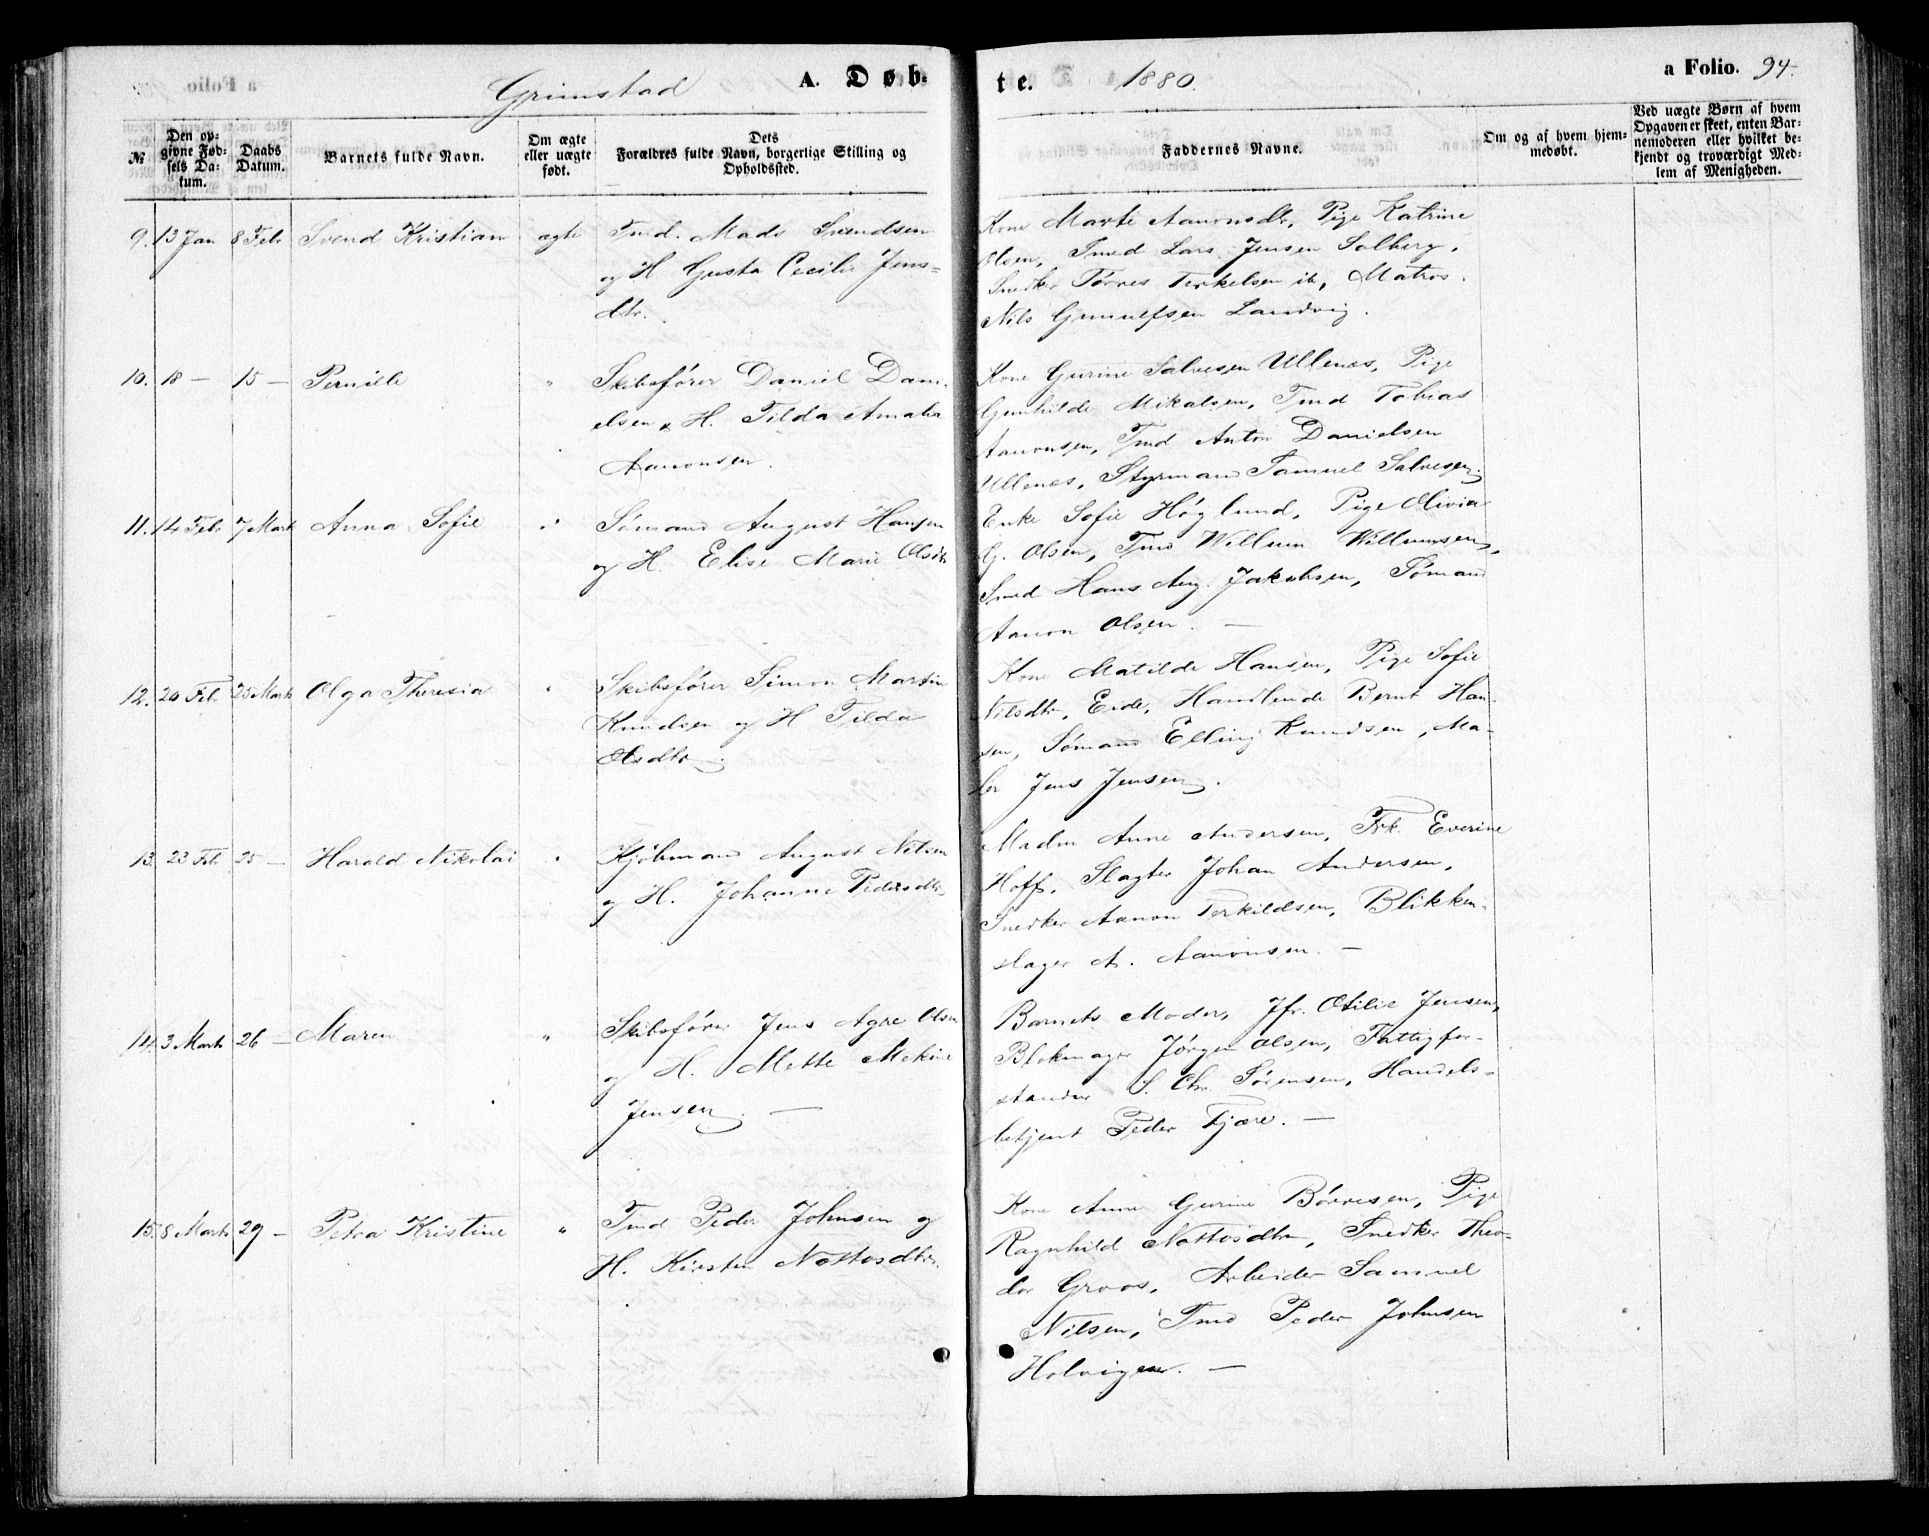 Grimstad A. Døb-
te. 1880. a Folio. 94.
№
Den op-
givne Fød-
sels Da-
tum.
Daabs
Datum.
Barnets fulde Navn.
Om ægte
eller uægte
født.
Dets
Forældres fulde Navn, borgerlige Stilling og
Opholdssted.
Faddernes Navne.
Om og af hvem hjem-
medøbt.
Ved uægte Børn af hvem
Opgaven er skeet, enten Bar-
nemoderen eller hvilket be-
kjendt og troværdigt Med-
lem af Menigheden.
9. 13 Jan 8 Febr Svend Kristian ægte Tmd. Mads Svendsen
og H Gusta Cecilie Jens-
dtr.
Kone Marte Aanonsdtr, Pige Katrine
Olsen, Smed Lars Jensen Solberg,
Snedker Tørres Terkelsen ib, Matros
Nils Gunnulfsen Landvig.
10. 18 — 15 — Pernille " Skibsfører Daniel Dani-
elsen & H. Tilda Amalia
Aanonsen.
Kone Gurine Salvesen Ullenes, Pige
Gunhilde Mikalsen, Tmd Tobias
Aanonsen, Tmd Anton Danielsen
Ullenes, Styrmand Samuel Salvesen.
11. 14 Feb. 7 Marts Anna Sofie " Sømand August Hansen
og H. Elise Marie Olsdtr
Enke Sofie Høglund, Pige Olivia
G. Olsen, Tmd Willum Willumsen,
Smed Hans Aug. Jakobsen, Sømand
Aanon Olsen. —
12. 20 Feb. 25 Marts Olga Theresia " Skibsfører Simon Martin
Knudsen og H Tilda
Olsdtr.
Kone Matilde Hansen, Pige Sofie
Nilsdtr, Eide, Handlende Bernt Han-
sen, Sømand Elling Knudsen, Ma-
ler Jens Jensen.
13. 23 Feb 25 — Harald Nikolai " Kjøbmand August Nilsen
og H. Johanne Pedersdtr
Madm Anne Andersen, Frk. Everine
Hoff, Slagter Johan Andersen,
Snedker Aanon Terkildsen, Blikken-
slager A. Aanonsen. —
14. 3 Marts 26 — Maren " Skibsfører Jens Agre Olsen
og H. Mette Mekine
Jensen. —
Barnets Moder, Jfr. Otilie Jensen,
Blokmager Jørgen Olsen, Fattigfor-
stander S. Chr Sørensen, Handels-
betjent Peder Fjære. —
15. 8 Marts 29 — Petra Kristine " Tmd Peder Johnsen og
H. Kirsten Nottosdtr.
Kone Anne Gurine Børresen, Pige
Ragnhild Nottosdtr, Snedker Theo-
dor Groos, Arbeider Samuel
Nilsen, Tmd Peder Johnsen
Holvigen. —